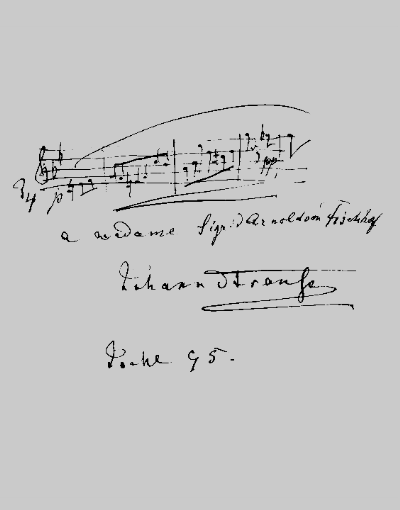 3/4 p pp
a madame Sigrid Arnoldson Fischhof
Johann Strauss
Ischl 95.